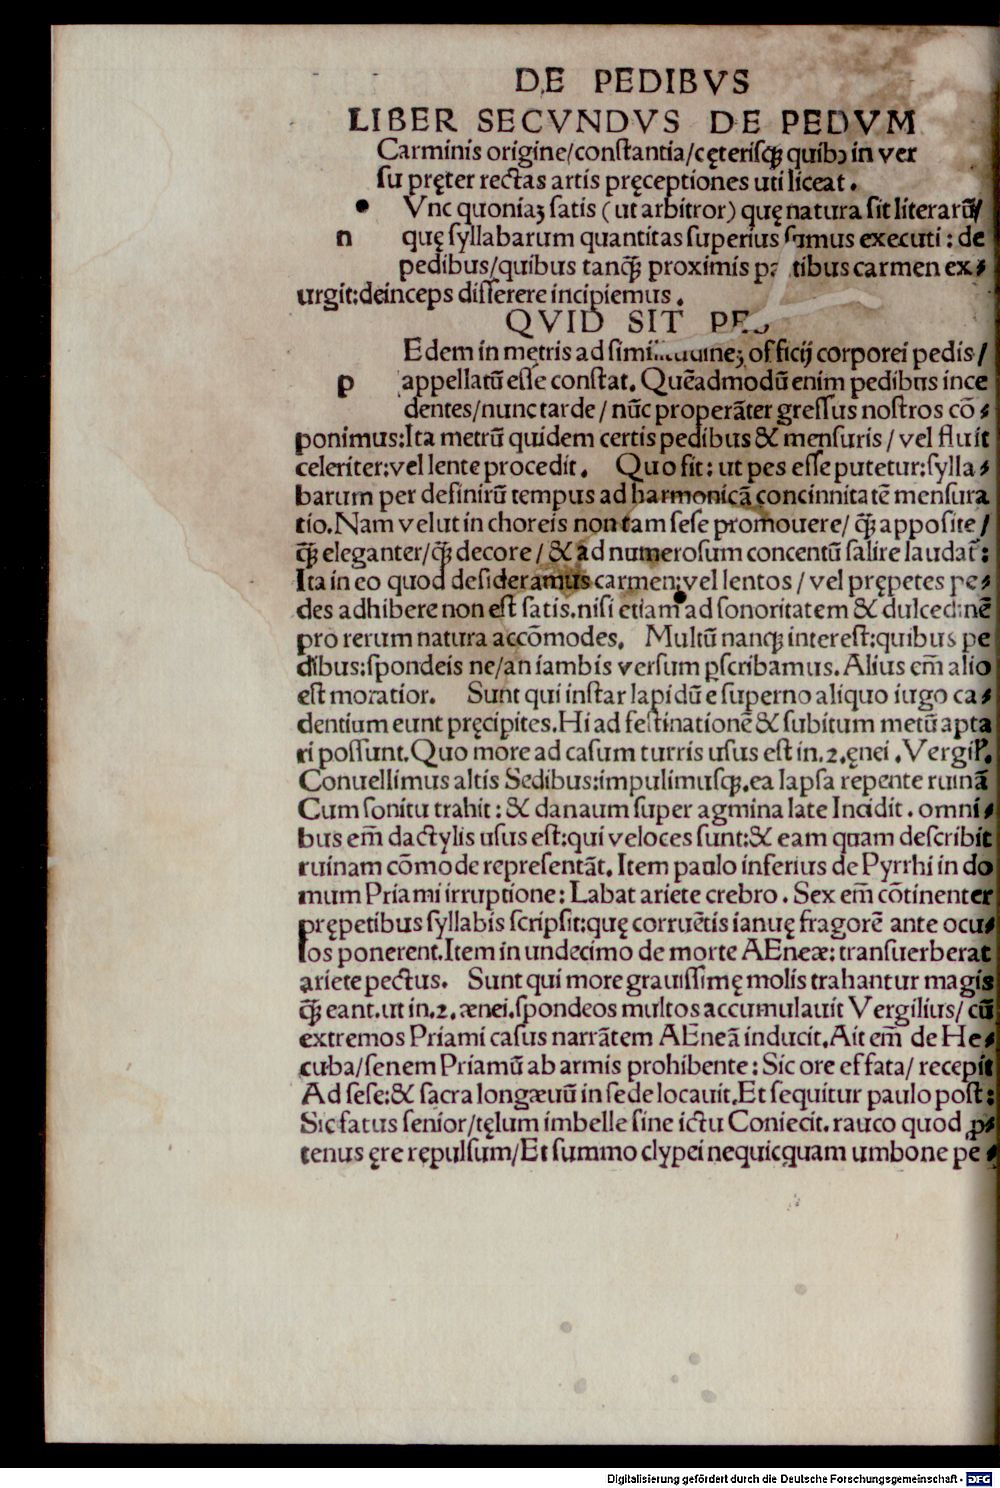 DE PEDIBVS
LIBER SECVNDVS DE PEDVM
Carminis origine/constantia/cęterisq̃ quibꝰ in ver
su pręter rectas artis pręceptiones uti liceat.
Vnc quoniaꝫ satis (ut arbitror) quę natura sit literarũ/
n quę syllabarum quantitas superius sumus executi: de
pedibus/quibus tanq̃ proximis partibus carmen ex⸗
urgit: deinceps disserere incipiemus.
QVID SIT PES
Edem in mętris ad similitudineꝫ officij corporei pedis/
p appellatũ esse constat. Quẽadmodũ enim pedibus ince
dentes/nunc tarde/ nũc properãter gressus nostros cõ⸗
ponimus: Ita metrũ quidem certis pedibus & mensuris/ vel fluit
celeriter: vel lente procedit. Quo fit: ut pes esse putetur: sylla⸗
barum per definirũ tempus ad harmonicã concinnitatẽ mensura
tio. Nam velut in choreis non tam sese promouere/ q̃ apposite/
q̃ eleganter/ q̃ decore/ & ad numerosum concentũ salire laudat̃:
Ita in eo quod desideramus carmen: vel lentos/ vel prępetes pe⸗
des adhibere non est satis. nisi etiam ad sonoritatem & dulcedinẽ
pro rerum natura accõmodes. Multũ nanq; interest: quibus pe
dibus: spondeis ne/an iambis versum ꝑscribamus. Alius em̃ alio
est moratior. Sunt qui instar lapidũ e superno aliquo iugo ca⸗
dentium eunt pręcipites. Hi ad festinationẽ & subitum metũ apta
ri possunt. Quo more ad casum turris usus est in .2. ęnei. Vergil̃.
Conuellimus altis Sedibus: impulimusq;. ea lapsa repente ruinã
Cum sonitu trahit: & danaum super agmina late Incidit. omni⸗
bus em̃ dactylis usus est: qui veloces sunt: & eam quam describit
ruinam cõmode representãt. Item paulo inferius de Pyrrhi in do
mum Priami irruptione: Labat ariete crebro. Sex em̃ cõtinenter
prępetibus syllabis scripsit: quę corruẽtis ianuę fragorẽ ante ocu⸗
los ponerent. Item in undecimo de morte AEneæ: transuerberat
ariete pectus. Sunt qui more grauissimę molis trahantur magis
q̃ eant. ut in .2. ænei. spondeos multos accumulauit Vergilius/ cũ
extremos Priami casus narrãtem AEneã inducit. Ait em̃ de He⸗
cuba/senem Priamũ ab armis prohibente: Sic ore effata/ recepit
Ad sese: & sacra longæuũ in sede locauit. Et sequitur paulo post:
Sic fatus senior/tęlum imbelle sine ictu Coniecit. rauco quod ꝓ⸗
tenus ęre repulsum/Et summo clypei nequicquam umbone pe⸗
Digitalisierung gefördert durch die Deutsche Forschungsgemeinschaft - DFG